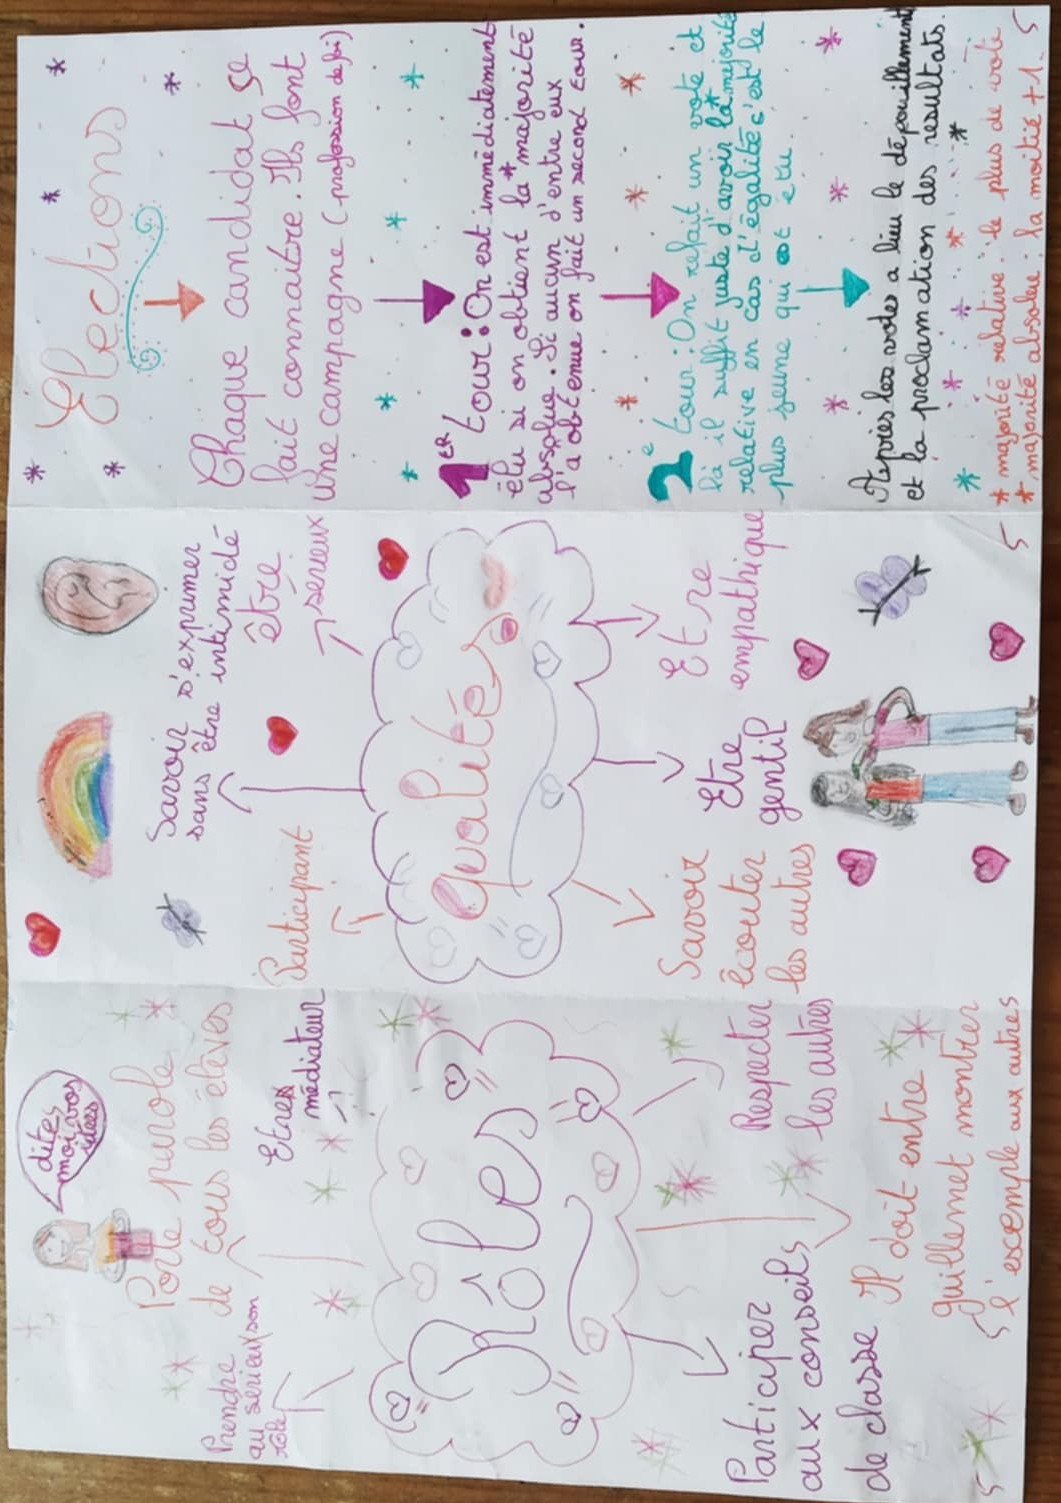 Rôles
dites
moi vos
idées
Porte parole
de tous les élèves
Prendre
au sérieux son
rôle
Etres
médiateur
Participer
aux conseils
de classe
Respecter
les autres
Il doit entre
guillemet montrer
l'exemple aux autres
qualités
Participant
Savoir s'exprimer
sans être intimidé
être
sérieux
Savoir
écouter
les autres
Etre
gentil
Etre
empathique
Elections
Chaque candidat se
fait connaître. Ils font
une campagne (profession de foi)
1ER tour : On est immédiatement
élu si on obtient la * majorité
absolue. Si aucun d'entre eux
l'a obtenue on fait un second tour.
2e tour : On refait un vote et
là il suffit juste d'avoir la * majorité
relative en cas d'égalité c'est le
plus jeune qui est élu
Après les votes a lieu le dépouillement
et la proclamation des resultats.
* majorité relative : le plus de vote
* majorité absolue : la moitié +1.